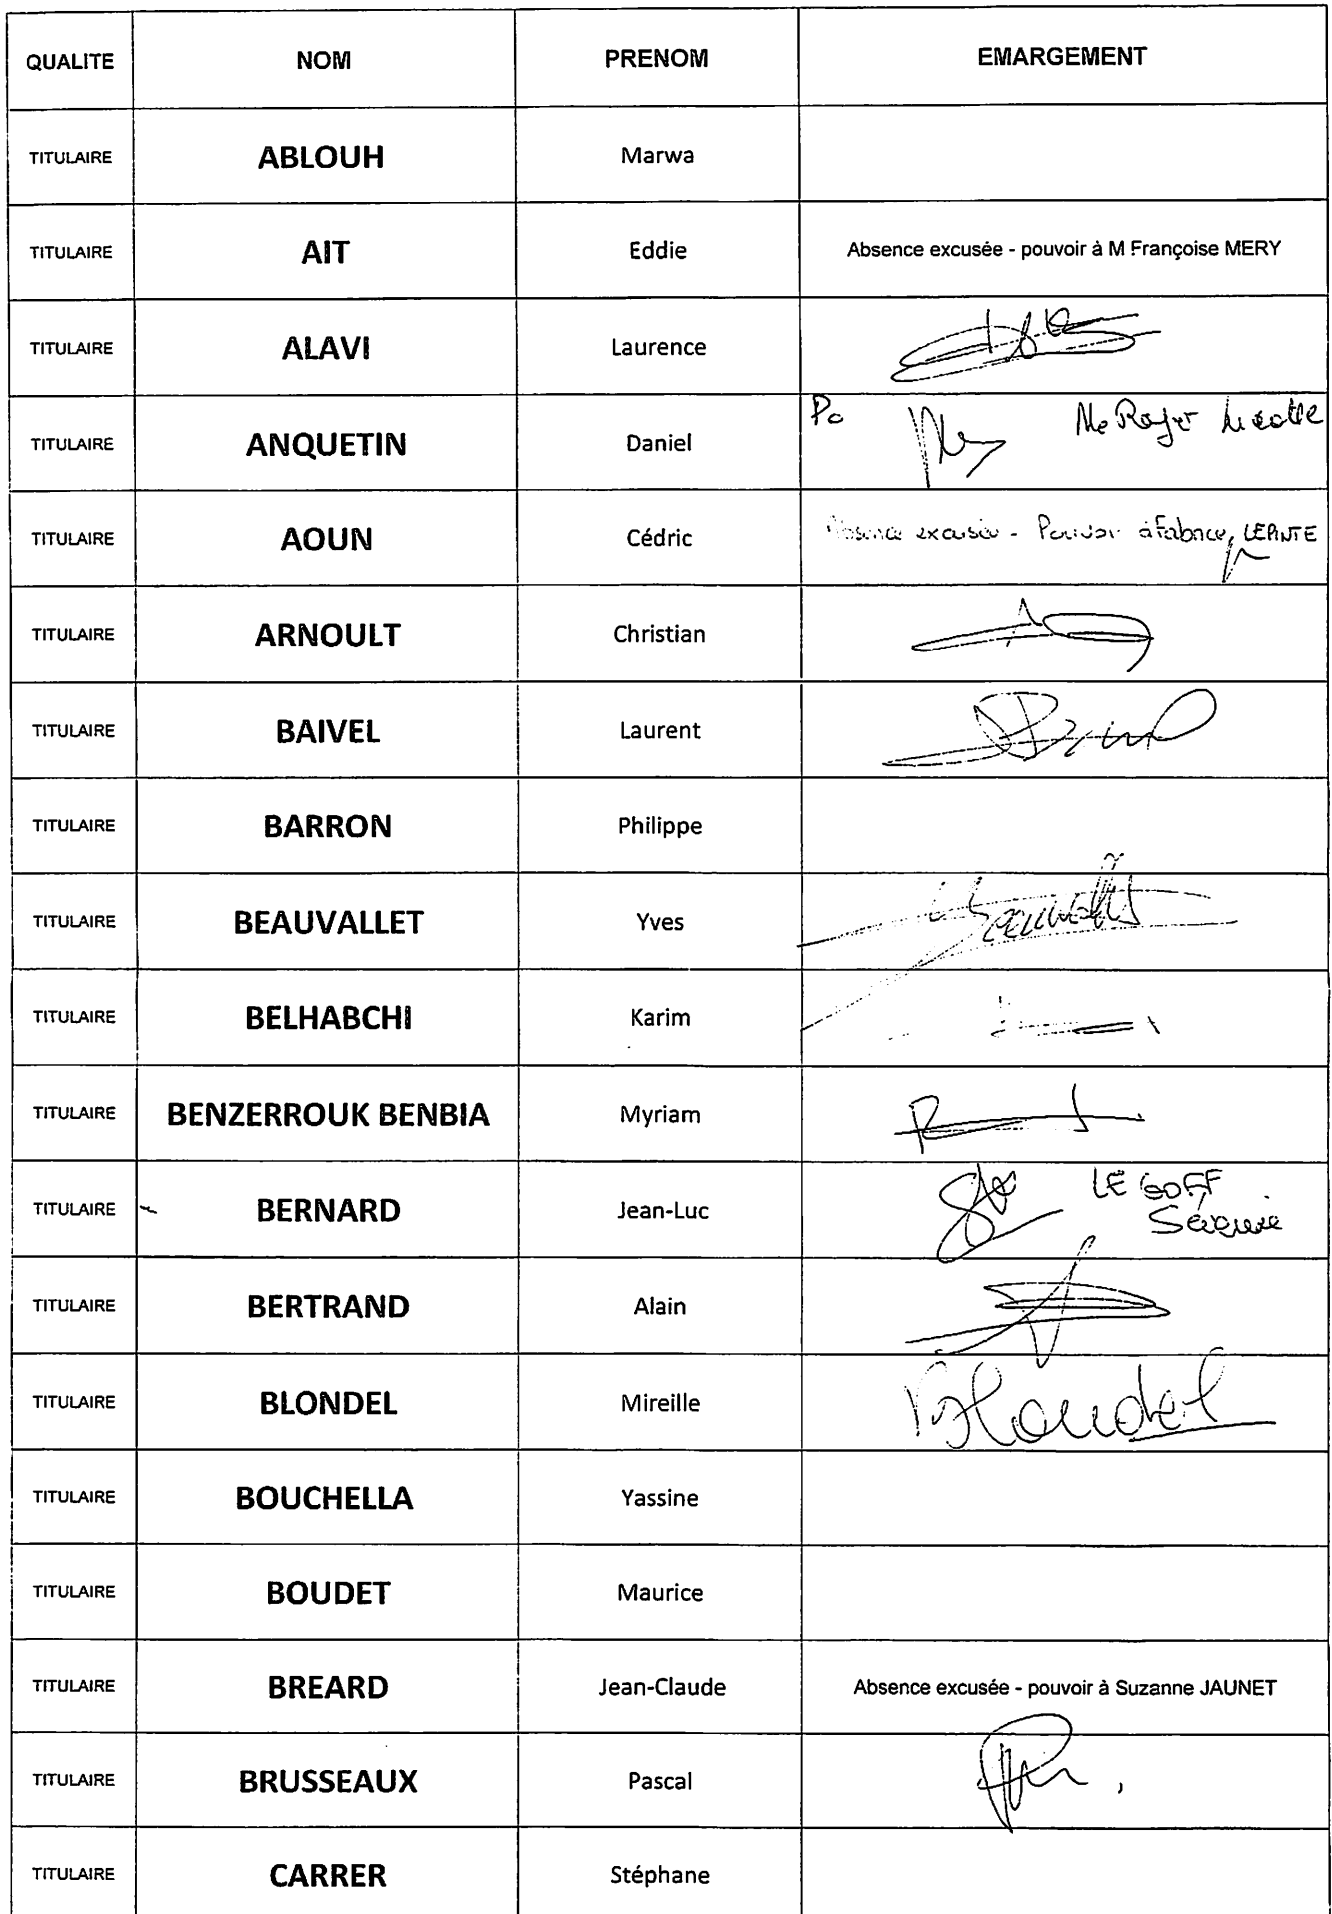 QUALITE NOM PRENOM EMARGEMENT
TITULAIRE ABLOUH Marwa
TITULAIRE AIT Eddie Absence excusée - pouvoir à M Françoise MERY
TITULAIRE ALAVI Laurence
TITULAIRE ANQUETIN Daniel Po Me Roger
TITULAIRE AOUN Cédric Absence excusée - Pouvoir à Fabrice LEPINTE
TITULAIRE ARNOULT Christian
TITULAIRE BAIVEL Laurent
TITULAIRE BARRON Philippe
TITULAIRE BEAUVALLET Yves
TITULAIRE BELHABCHI Karim
TITULAIRE BENZERROUK BENBIA Myriam
TITULAIRE BERNARD Jean-Luc LE GOFF
TITULAIRE BERTRAND Alain
TITULAIRE BLONDEL Mireille Blondel
TITULAIRE BOUCHELLA Yassine
TITULAIRE BOUDET Maurice
TITULAIRE BREARD Jean-Claude Absence excusée - pouvoir à Suzanne JAUNET
TITULAIRE BRUSSEAUX Pascal
TITULAIRE CARRER Stéphane